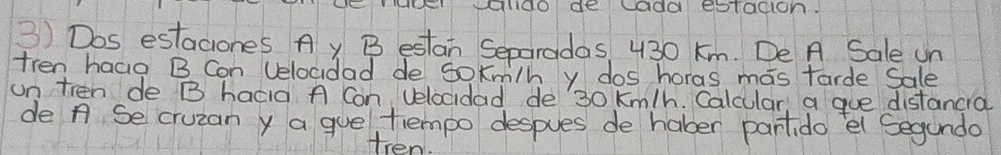 salido de cada estación.
3) Dos estaciones A y B están separadas 430 Km. De A Sale un
tren hacia B Con Velocidad de 50Km/h y dos horas más tarde Sale
un tren de B hacia A Con Velocidad de 30 Km/h. Calcular a que distancia
de A Se cruzan y a que tiempo despues de haber partido el Segundo
tren.